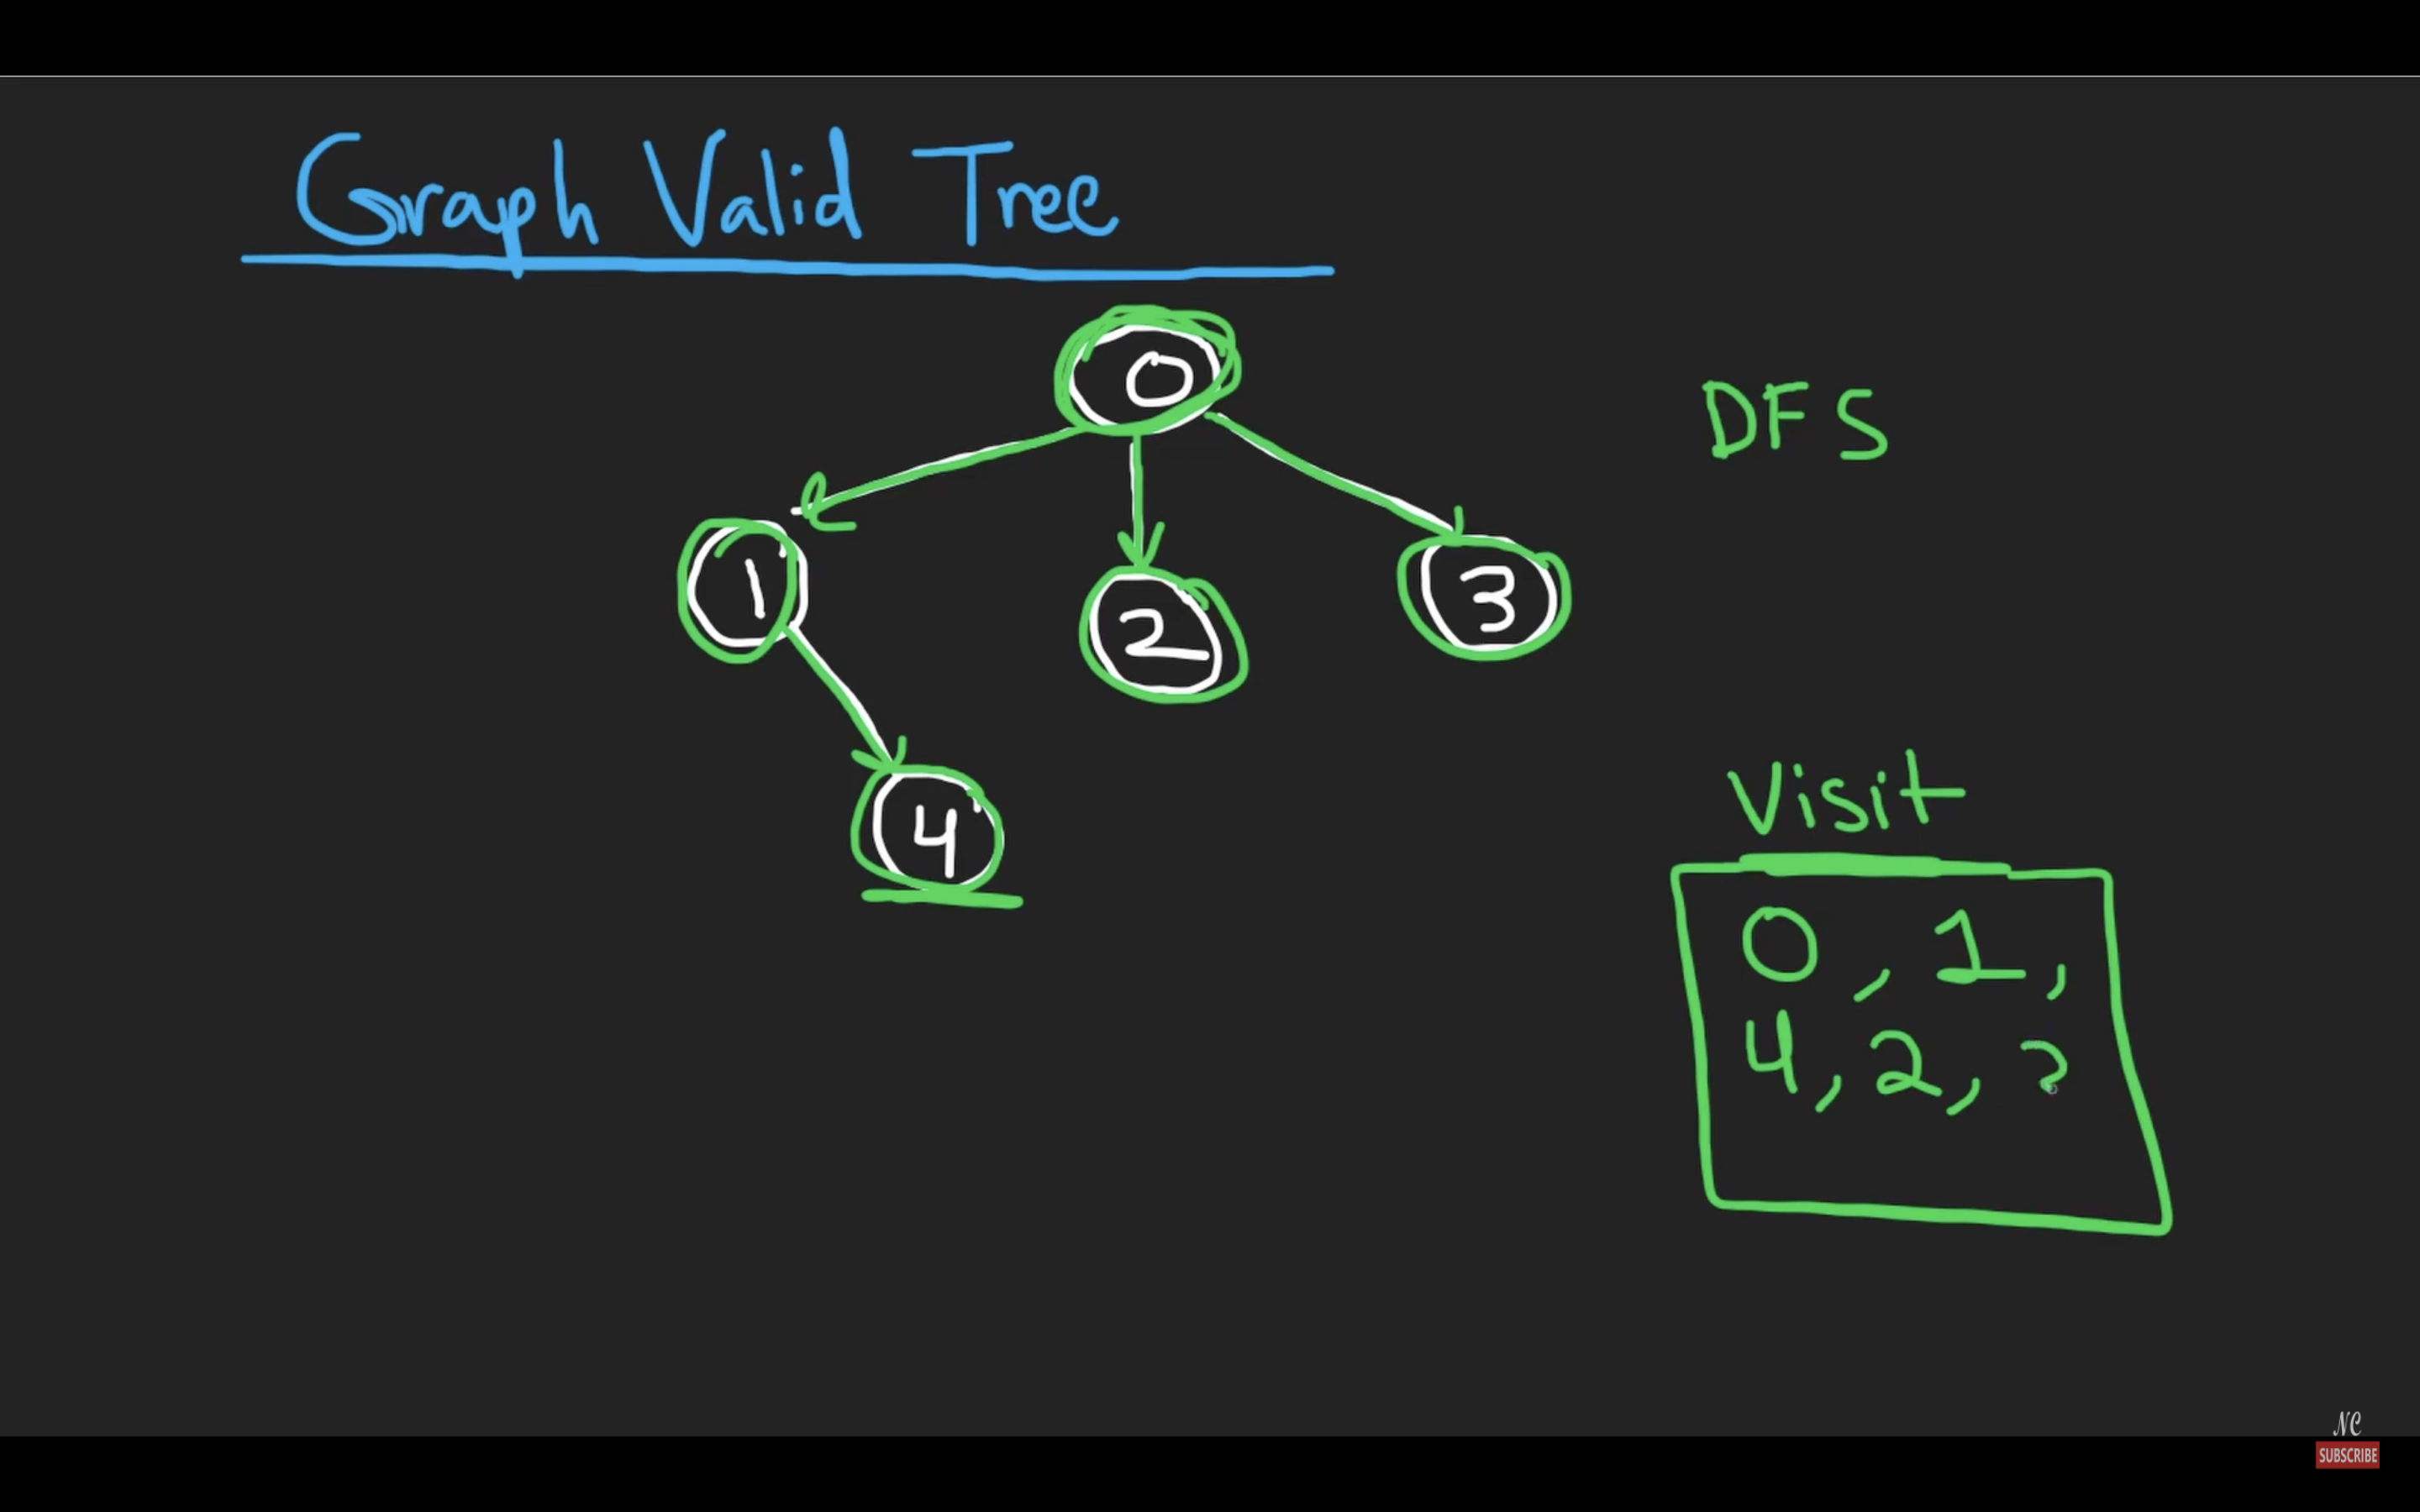 Graph Valid Tree
0
DFS
1
2
3
4
Visit
0, 1,
4, 2, 3
NC
SUBSCRIBE